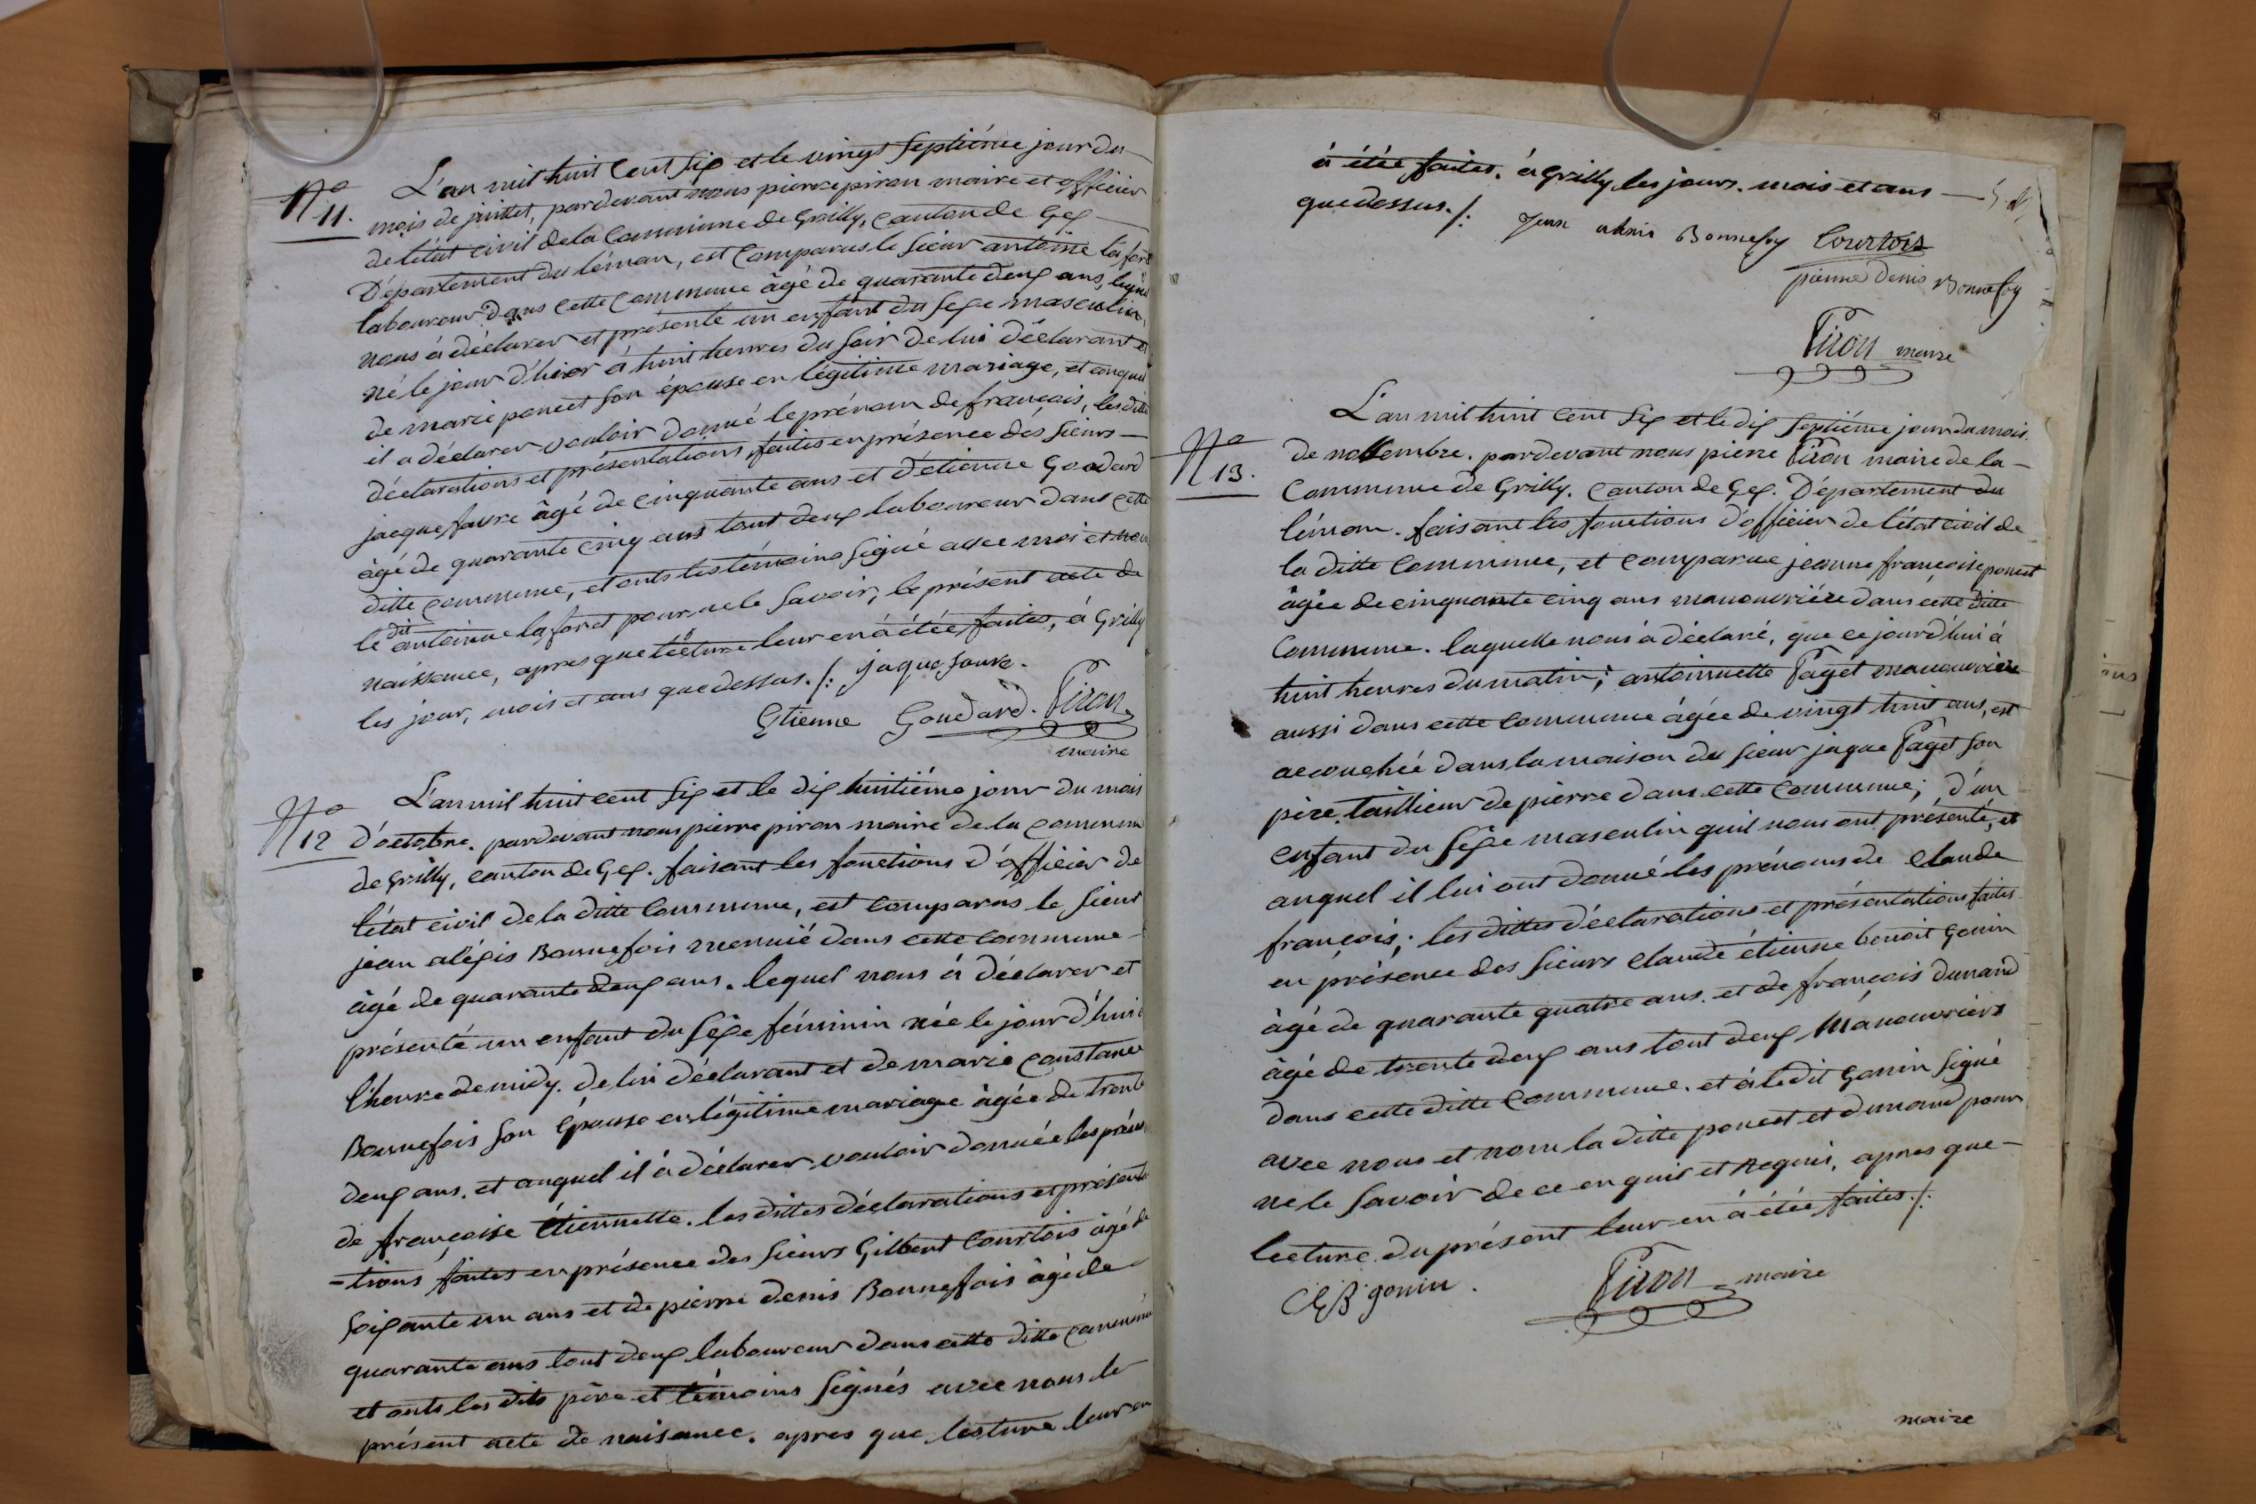 N.o 11.
L'an mil huit cent six et le vingt septiéme jour du
mois de juillet, pardevant nous pierre piron maire et officier
de l'état civil de la Commune de Grilly, canton de Gex
Département du léman, est Comparus le sieur antoine laforet
laboureur dans cette Commune âgé de quarante deux ans, lequel
nous à déclarer et présenté un enfant du sexe masculin,
né le jour d'hier à huit heures du soir de lui déclarant et
de marie poncet son épouse en légitime mariage, et auquel
il a déclarer vouloir donné le prénom de françois, les dittes
déclarations et présentations faites en présence des sieurs
jaque favre âgé de cinquante ans et d'étienne Goudard
âgé de quarante cinq ans tout deux laboureur dans cette
ditte commune, et onts les témoins signé avec moi et non
le dit antoinne laforet pour ne le savoir, le présent acte de
naissance, apres que lecture leur en à étée faites, à Grilly
les jour, mois et ans que dessus./: jaque favre.
Etienne Goudard. Piron
maire
N.o 12
L'an mil huit cent six et le dix huitiéme jour du mois
d'octobre. pardevant nous pierre piron maire de la commune
de Grilly, canton de Gex. faisant les fonctions d'officier de
l'état civil de la ditte Commune, est comparus le sieur
jean aléxis Bonnefois meunié dans cette commune
âgé de quarante deux ans. lequel nous à déclarer et
présenté un enfant du séxe féminin née le jour d'hui à
l'heure de midy. de lui déclarant et de marie constance
Bonnefois son Épouse en légitime mariage âgée de trente
deux ans. et auquel il à déclarer vouloir donnée les prénoms
de françoise Étiennette. les dittes déclarations et présenta
-tions faites en présence des sieurs Gilbert Courtois âgé de
soixante un ans et de pierre denis Bonnefois âgé de
quarante ans tout deux laboureur dans cette ditte commune
et onts les dits père et témoins signés avec nous le
présent acte de naisance. apres que lecture leur en
à étée faites. à Grilly les jours. mois et ans
que dessus./: Jean alexis Bonnefoy Courtois
pierre Denis Bonnefoy
Piron maire
N.o 13.
L'an mil huit cent six et le dix septiéme jour du mois
de novembre. pardevant nous pierre Piron maire de la
Commune de Grilly. Canton de Gex. Département du
léman. faisant les fonctions d'officier de l'état civil de
la ditte Commune, et comparue jeanne françoise poncet
âgée de cinquante cinq ans manouvriére dans cette ditte
Commune. laquelle nous à déclaré, que ce jourd'hui à
huit heures du matin; antoinnette Paget manouvrière
aussi dans cette commune âgée de vingt huit ans, est
accouchée dans la maison du sieur jaque Paget son
père taillieur de pierre dans cette Commune; d'un
enfant du séxe masculin quil nous ont présenté, et
auquel il lui ont donné les prénoms de Claude
françois; les dittes déclarations et présentations faites
en présence des sieurs Claude étienne benoit Gonin
âgé de quarante quatre ans. et de françois dunand
âgé de trente deux ans tout deux Manouvriers
dans cette ditte commune. et à le dit Gonin signé
avec nous et nom la ditte poncet et dunand pour
ne le savoir de ce enquis et Requis, apres que
lecture du présent leur en à étée faites./:
CEB gonin. Piron maire
maire